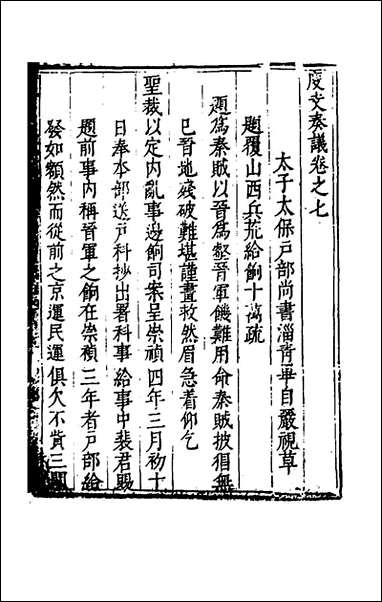 度支奏議卷之七
太子太保戶部尚書淄青畢自嚴視草
題覆山西兵荒給餉十萬疏
題爲秦賊以晉爲壑晉軍饑難用命秦賊披猖無
巳晉地殘破難堪謹畫救然眉急着仰乞
聖裁以定內亂事邊餉司案呈崇禎四年三月初十
日奉本部送戶科抄出署科事給事中裴君賜
題前事內稱晉軍之餉在崇禎三年者戶部給
發如額然而從前之京運民運俱欠不貲三